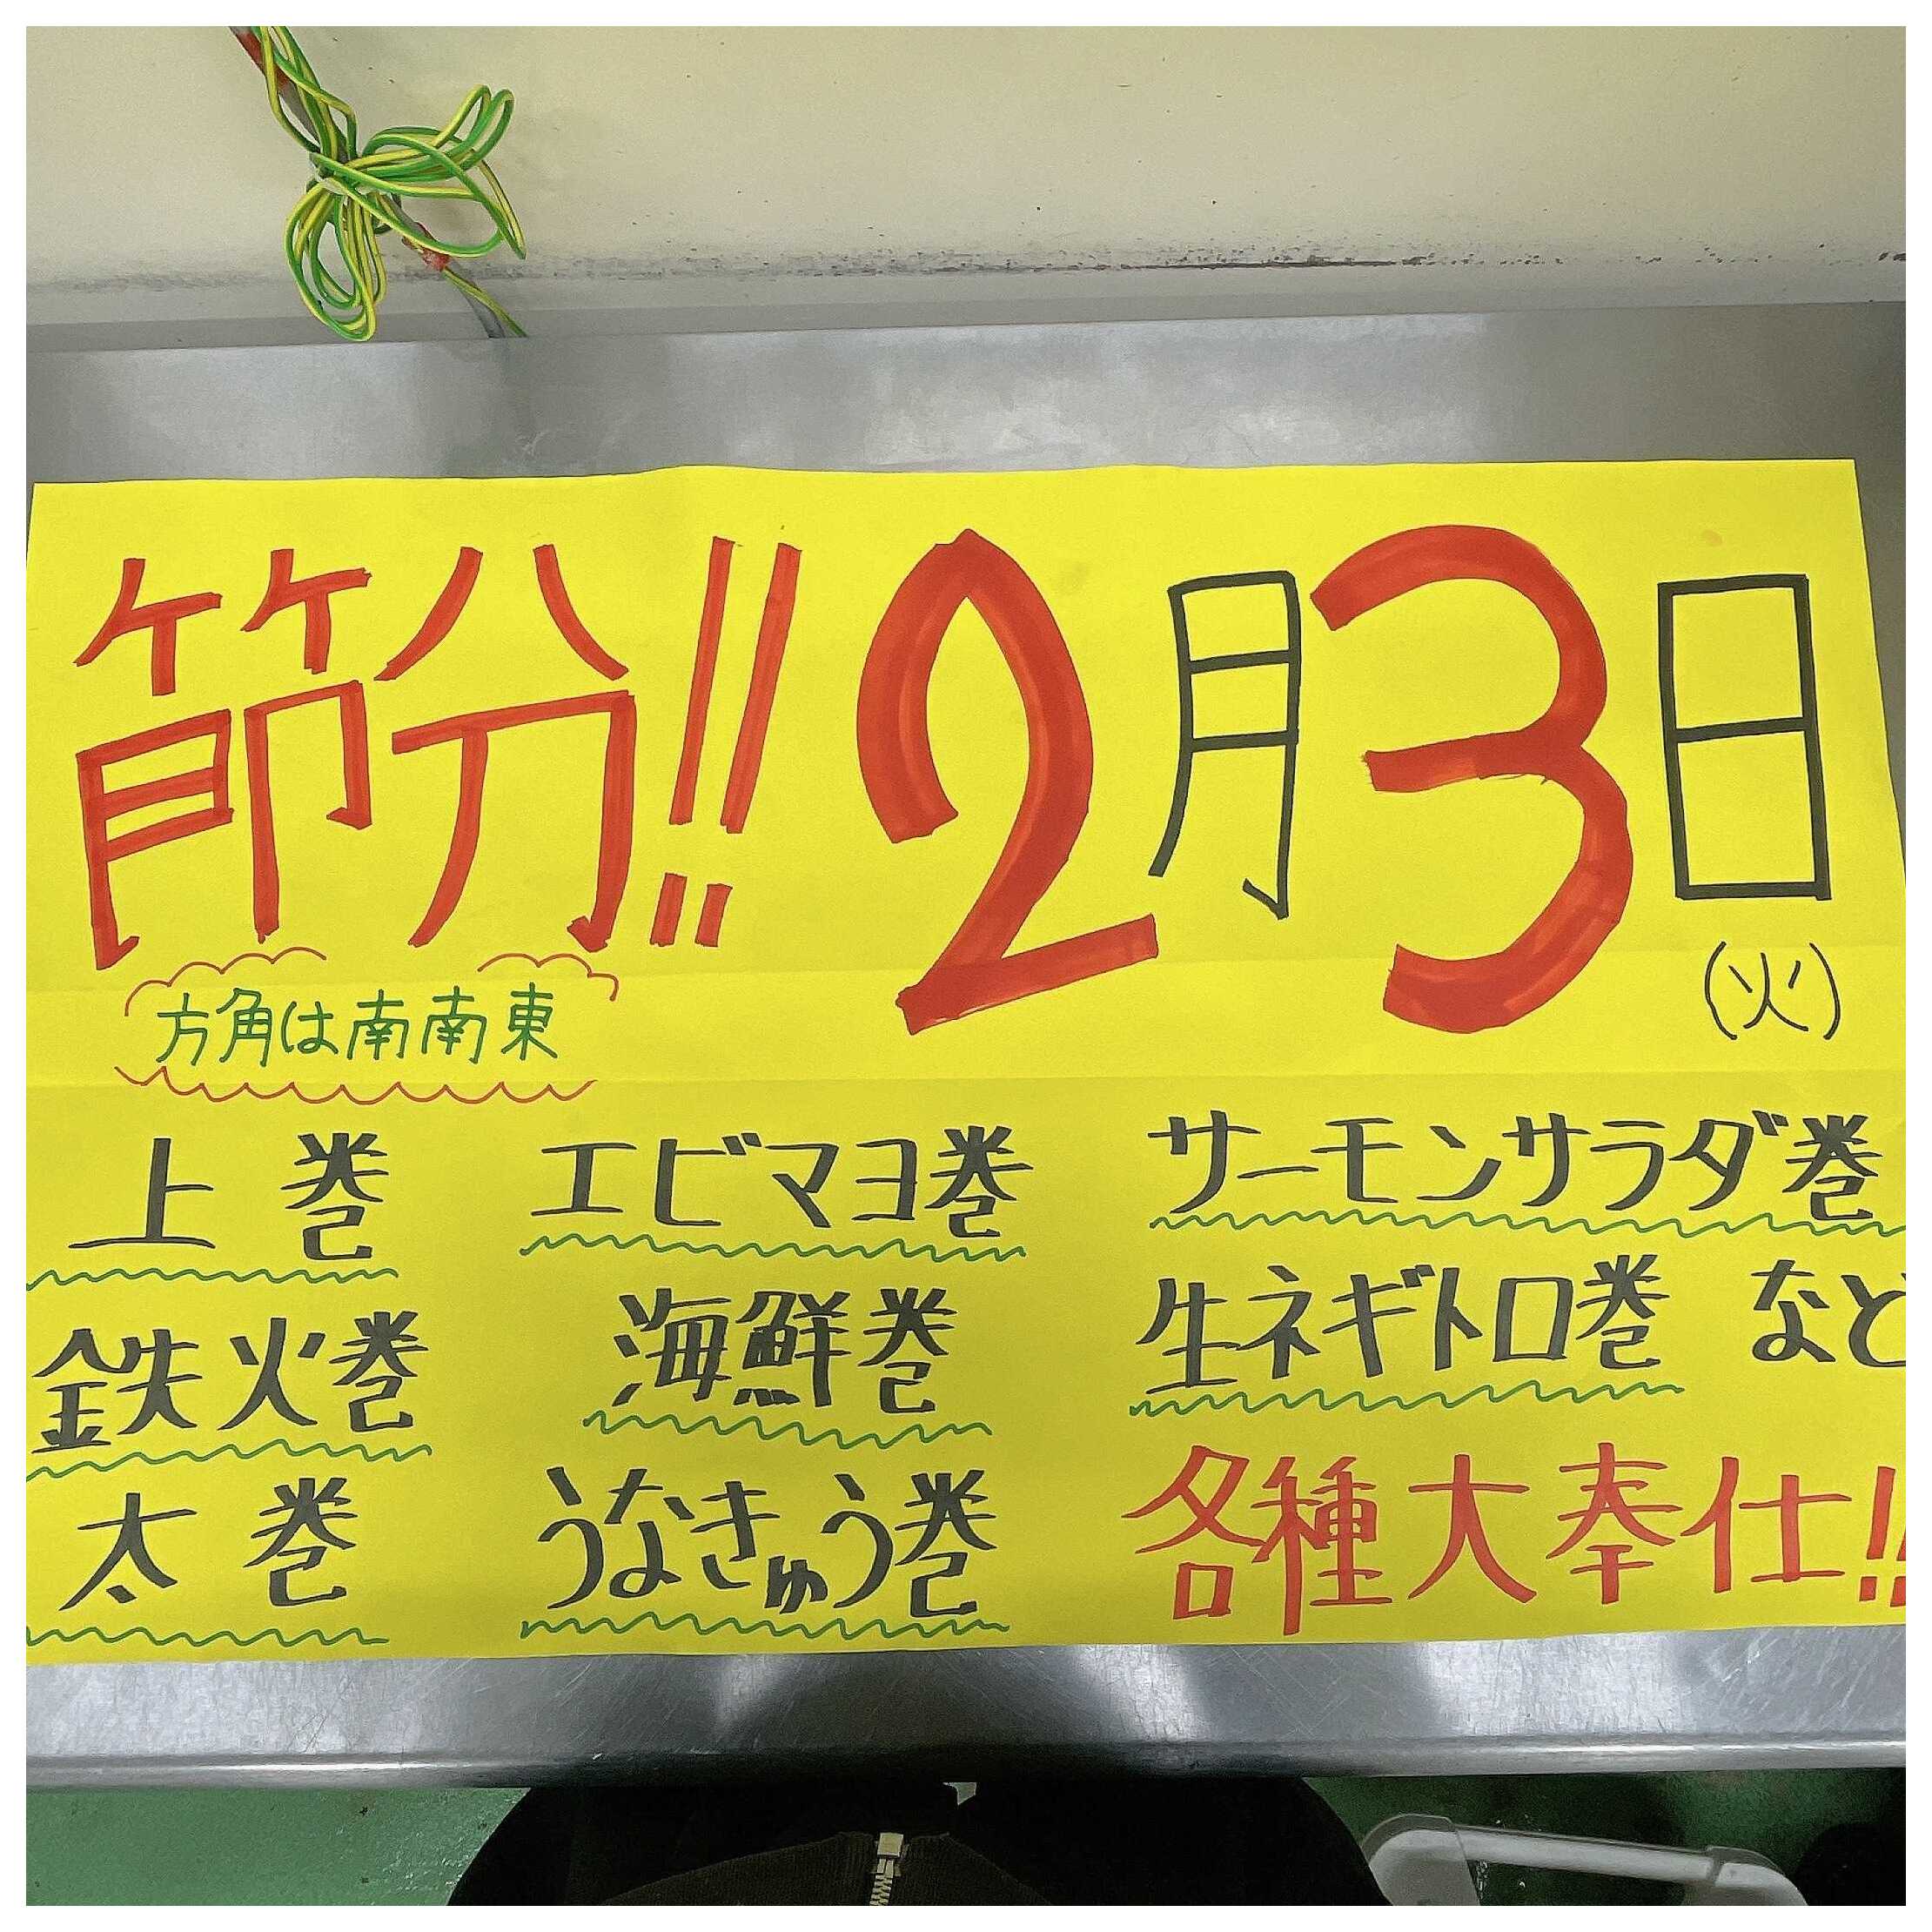 節分!! 2月3日
(火)
方角は南南東
上巻 エビマヨ巻 サーモンサラダ巻
鉄火巻 海鮮巻 生ネギトロ巻 など
太巻 うなきゅう巻 各種大奉仕!!